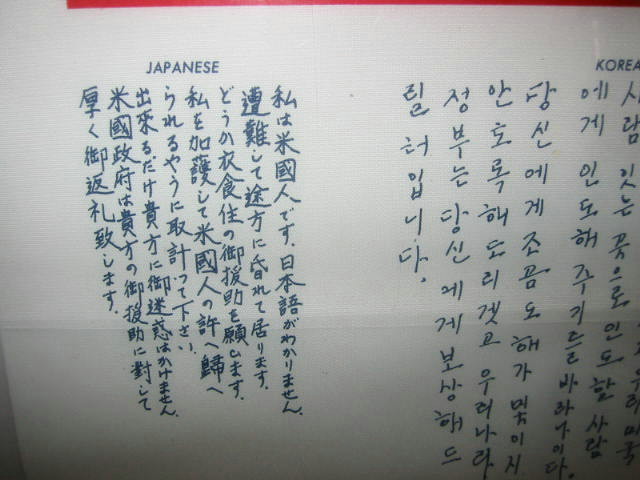 JAPANESE
私は米國人です.日本語がわかりません.
遭難して途方に昏れて居ります.
どうか衣食住の御援助を願います.
私を加護して米國人の許へ歸へ
られるやうに取計つて下さい.
出來るだけ貴方に御迷惑はかけません.
米國政府は貴方の御援助に對して
厚く御返礼致します.
KOREA
우리 미국
사람 잇는 곳으로 인도할 사람
에게 인도해 주기를 바라나이다.
당신에게 조곰도 해가 및이지
안토록 해 드리겟고 우리나라
정부는 당신에게 보상해 드
릴 터입니다.